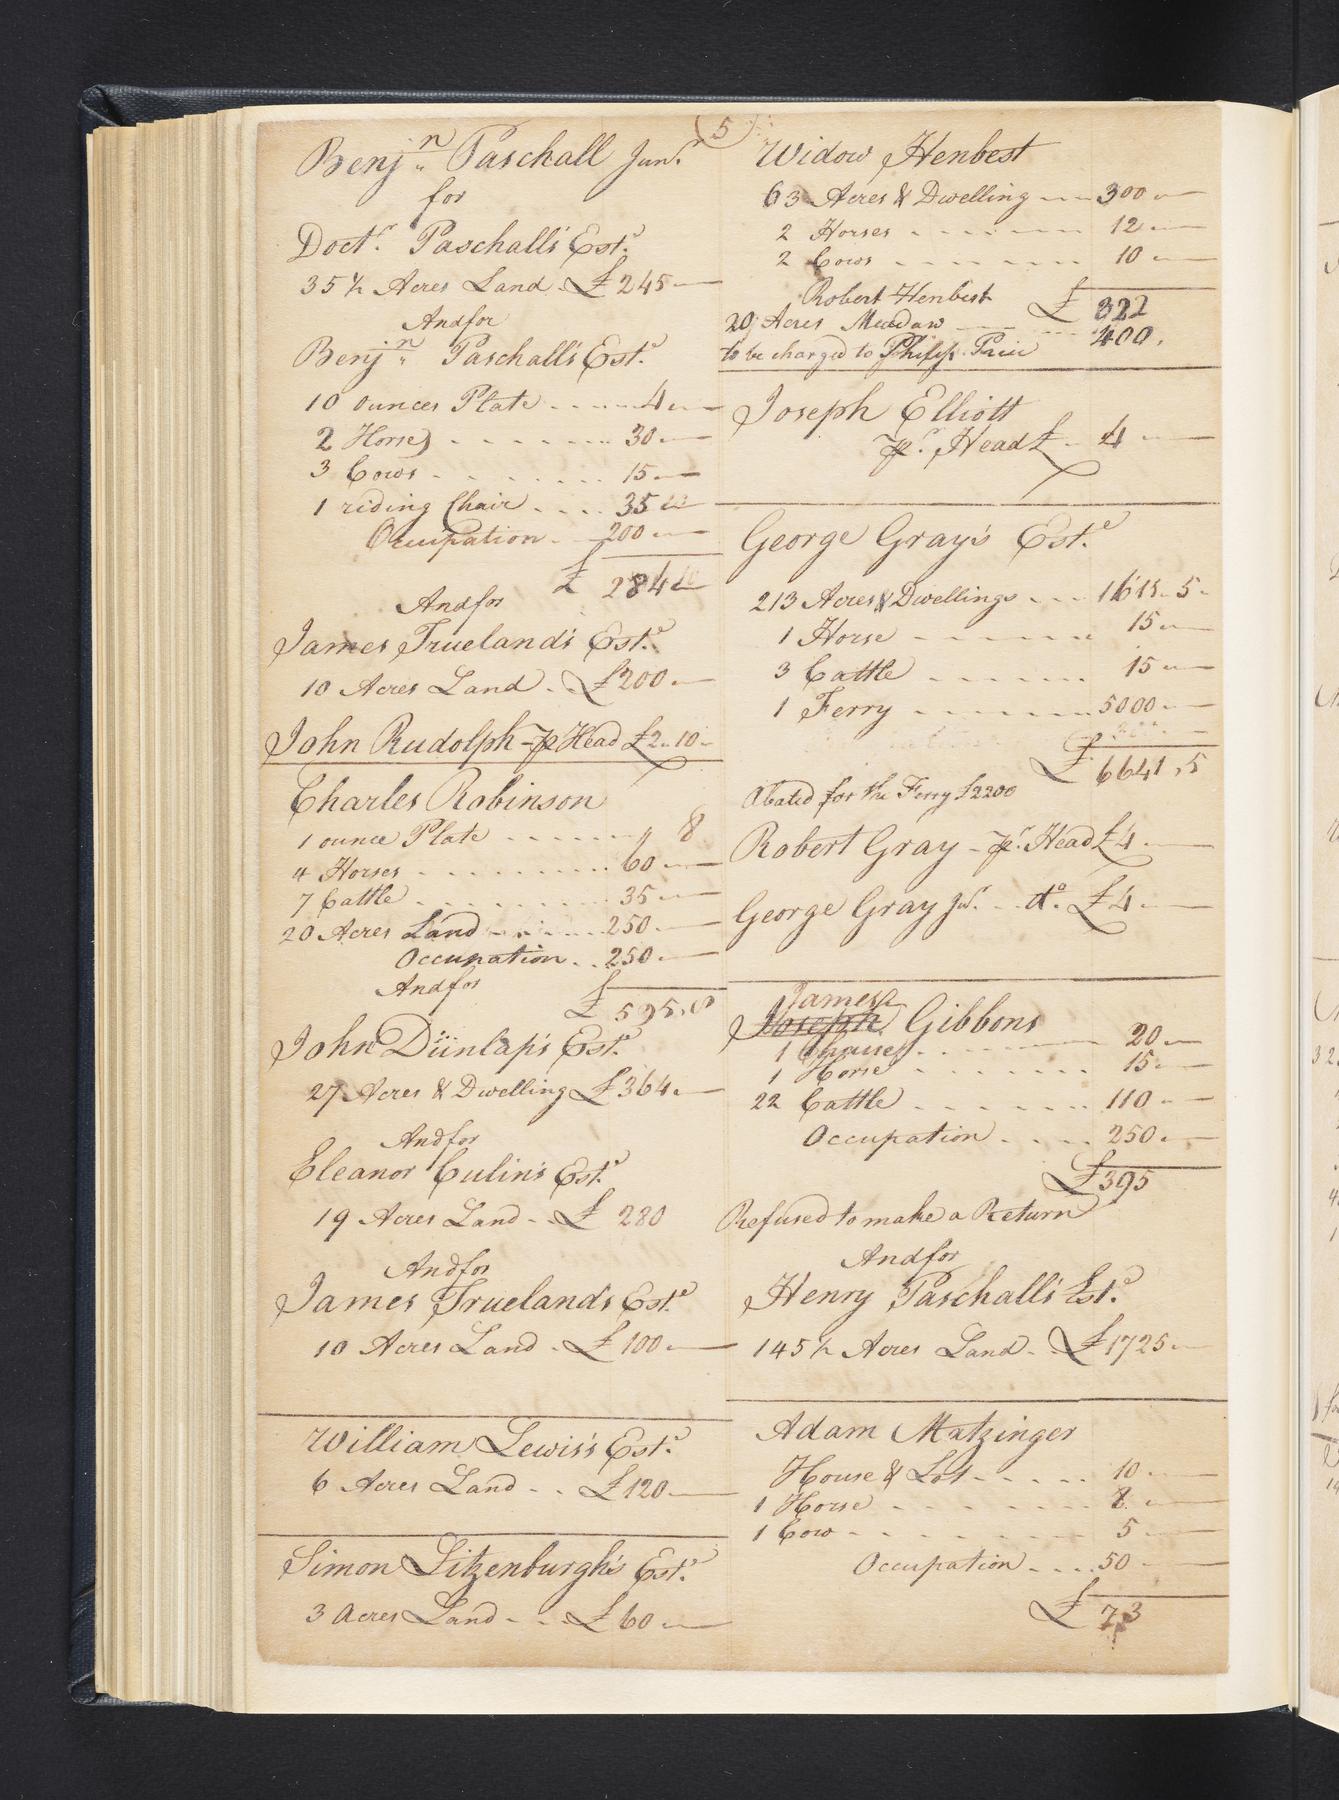 5
Benjn. Paschall Junr.
for
Doctr. Paschall's Este.
35 ½ Acres Land £ 245 —
And for
Benjn. Paschall's Este.
10 ounces Plate - - - - 4 —
2 Horses - - - - 30 —
3 Cows - - - - 15 —
1 riding Chair - - - - 35
Occupation - 200 —
£ 284
And for
James Trueland's Este.
10 Acres Land - £ 200 —
John Rudolph - pr Head £ 2 .. 10 -
Charles Robinson
1 ounce Plate - - - - " 8
4 Horses - - - - 60 —
7 Cattle - - - - 35 —
20 Acres Land - - - - 250 —
Occupation - - 250 —
And for
£ 595 .. 8
John Dunlap's Este.
27 Acres & Dwelling £ 364 —
And for
Eleanor Culin's Este.
19 Acres Land - - £ 280
And for
James Trueland's Este.
10 Acres Land - £ 100 —
William Lewis's Este.
6 Acres Land - - £ 120 —
Simon Litzenburgh's Este.
3 Acres Land - - £ 60 —
Widow Henbest
63 Acres & Dwelling - - - 300 —
2 Horses - - - - 12 —
2 Cows - - - - 10 —
£ 322
Robert Henbest
20 Acres Meadow - - - - 400.
to be charged to Philip Price
Joseph Elliott
pr. Head £ - 4 —
George Gray's Este.
213 Acres & Dwellings - - - 1611 .. 5 -
1 Horse - - - - 15 —
3 Cattle - - - - 15 —
1 Ferry - - - - 5000 —
£ 6641 , 5
Abated for the Ferry £2200
Robert Gray - pr. Head £ 4 —
George Gray Jur. - do. £ 4 —
James
Joseph Gibbons
1 Chaise - - - - 20 —
1 Horse - - - - 15 —
22 Cattle - - - - 110 —
Occupation - - - - 250 —
£ 395
Refused to make a Return
And for
Henry Paschall's Este.
145 ½ Acres Land - - £ 1725 —
Adam Matzinger
House & Lot - - - - 10 —
1 Horse - - - - 8 —
1 Cow - - - - 5 —
Occupation - - - - 50 —
£ 73